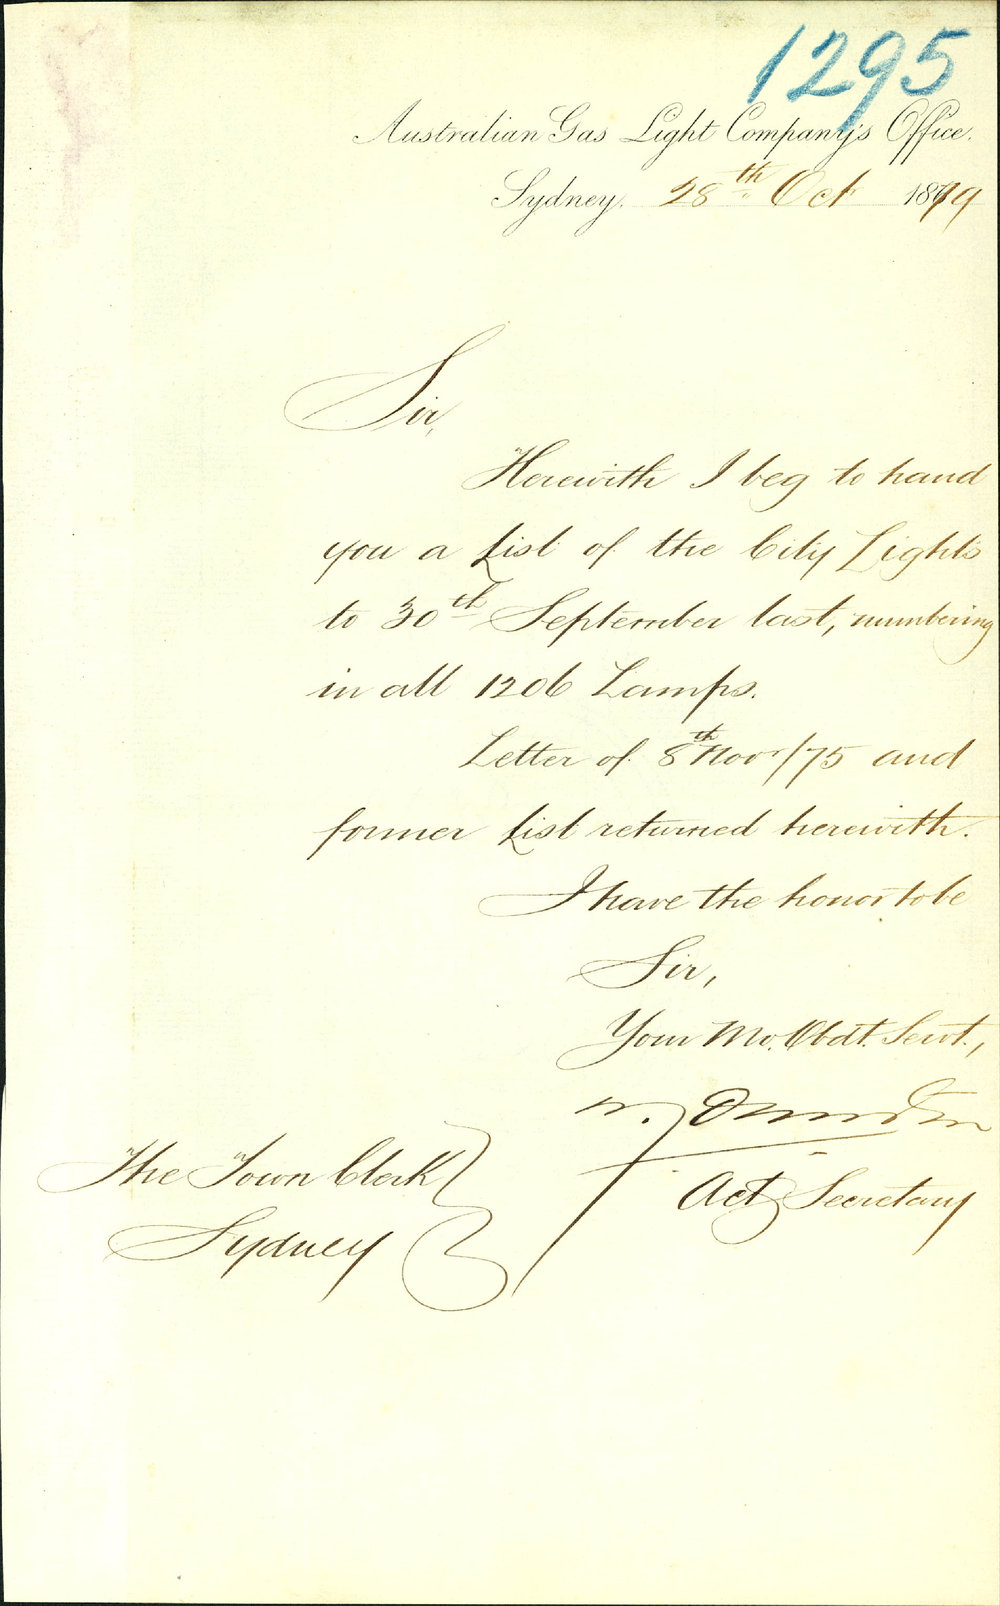 1295
Australian Gas Light Company's Office.
Sydney. 28th Oct 1879
Sir,
Herewith I beg to hand
you a List of the City Lights
to 30th September last, numbering
in all 1206 Lamps.
Letter of 8th Nov/75 and
former List returned herewith.
I have the honor to be
Sir,
Your Mo. Obdt. Servt.,
Act Secretary
The Town Clerk
Sydney